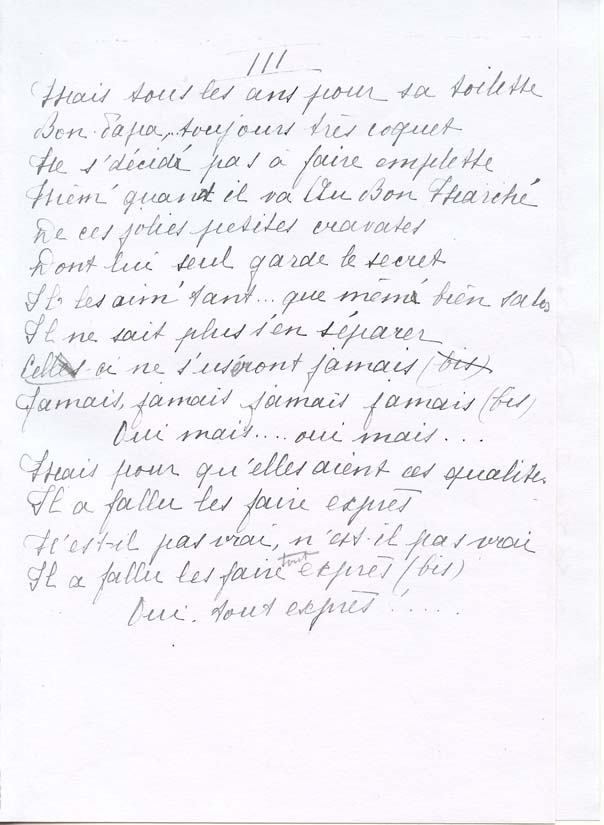 III
Mais tous les ans pour sa toilette
Bon-Papa, toujours très coquet
Ne s'décide pas à faire emplette
Mêm' quand il va Au Bon Marché
De ces jolies petites cravates
Dont lui seul garde le secret
Il les aim' tant... que même bien sales
Il ne sait plus s'en séparer
Celles-ci ne s'useront jamais (bis)
Jamais, jamais jamais jamais (bis)
Oui mais.... oui mais...
Mais pour qu'elles aient ces qualités
Il a fallu les faire exprès
N'est-il pas vrai, n'est-il pas vrai
Il a fallu les faire tout exprès (bis)
Oui. tout exprès !.....